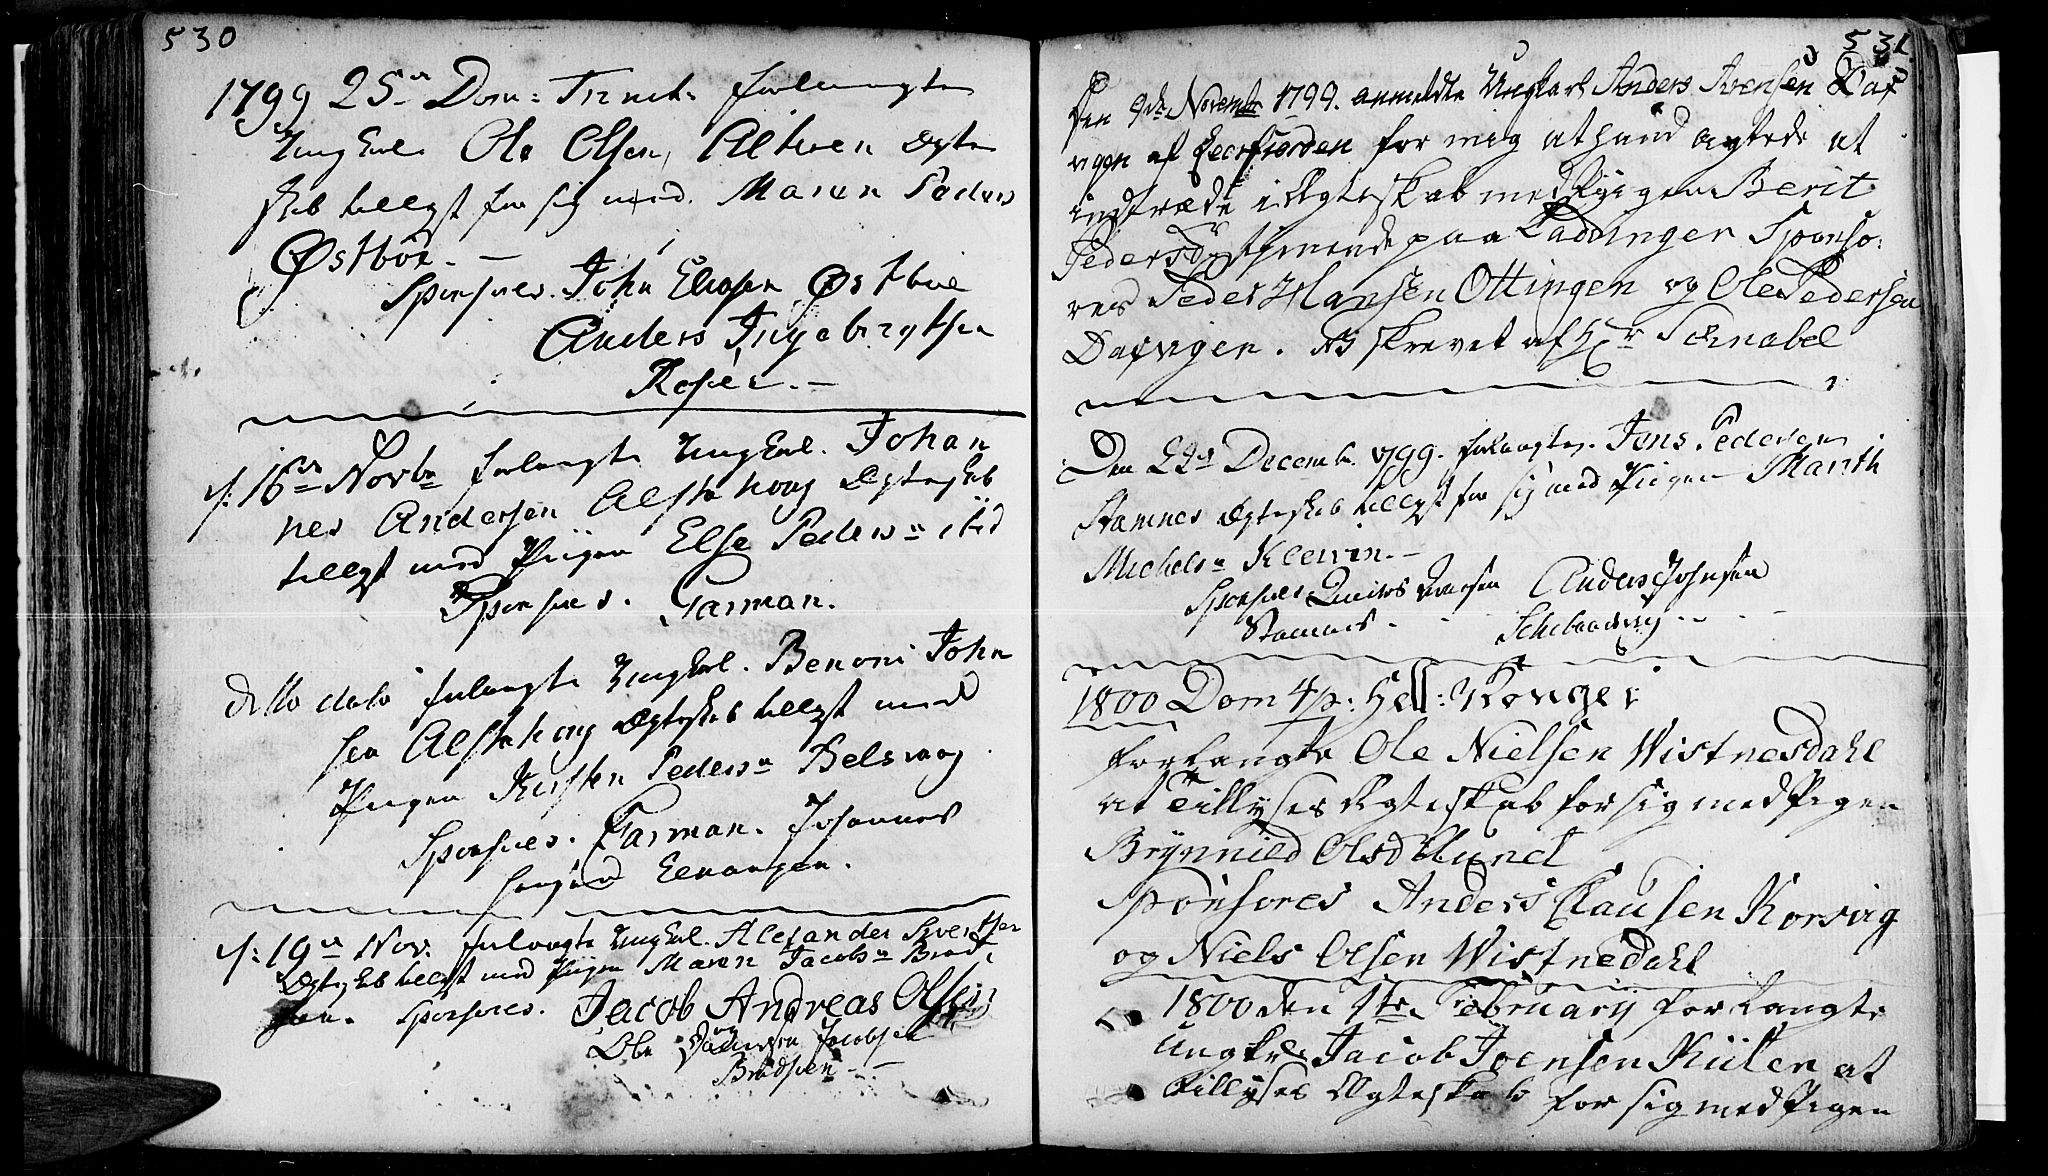 530
1799 25de Dom: Trinit: forlangte
Ungkarl Ole Olsen, Altwen Ægte
skab tellyst for sig med Maren Peders
Østböe. —
Sponsores. John Eliasen Østböe
Anders Ingebrigtsen
Rosöe. —
d: 16de Novbr forlangte Ungkarl. Johan
nes Andersen Alstahoug Ægteskab
tellyst med Piigen Else Pedersd ibid
Sponsores. Garman.
ditto dato forlangte Ungkarl. Benoni John
sen Alstahoug Ægteskab tellyst med
Piigen Kirsten Pedersd Belsvaag
Sponsores. Garman. Johannes
d: 19de Nov. forlangte Ungkarl. Alexander Sivertsen
Ægteskab tellyst med Piigen Maren Jacobsd
Sponsores. Jacob Andreas Olsen
og Jacobsen
531
Den 9de Novembr 1799. anmeldte Ungkarl Anders Ivensen Daf
vigen af Leerfiorden for mig at hand agtede at
indtræde i Ægteskab med Pigen Berit
Peders paa Laduinger Sponso:
res Peder Hansen Ottingen og Ole Pedersen
Dafvigen. Skrevet af Hr Schnabel
Den 22de Decemb. 1799. forlangte. Jens Pedersen
Stamnes Ægteskab tellyst for sig med Piigen Marith
Michelsd Kleiviin. —
Sponsores Iversen Anders Johnsen
Stamnes
1800 Dom 4 p: Hell: 3 Konger
forlangte Ole Nielsen Wistnesdahl
at Tillyses Ægteskab for sig med Pigen
Brynnild Olsd Lund
Sponsores Anders Clausen Korsvig
og Niels Olsen Wistnedahl
1800 den 1te February forlangte
Ungkrl Jacob Joensen Kulen at
tillyses Ægteskab for sig med Pigen